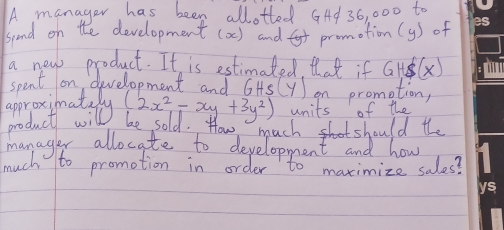 A manager has been allotted GH¢ 36,000 to
spend on the development (x) and promotion (y) of
a new product. It is estimated that if GH$(X)
spent on development and GH$(Y) on promotion,
approximately (2x² - xy + 3y²) units of the
product will be sold. How much should the
manager allocate to development and how
much to promotion in order to maximize sales?
es
1
ys